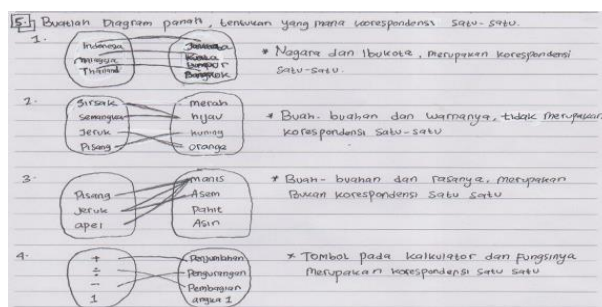 5. Buatlah Diagram panah, tentukan yang mana korespondensi satu-satu.
1.
Indonesia
Malaysia
Thailand
Jakarta
Kuala
Lumpur
Bangkok
* Negara dan Ibukota, merupakan korespondensi
satu-satu.
2.
Sirsak
Semangka
Jeruk
Pisang
merah
hijau
kuning
orange
* Buah-buahan dan warnanya, tidak merupakan
korespondensi satu-satu
3.
Pisang
Jeruk
apel
manis
Asem
Pahit
Asin
* Buah-buahan dan rasanya, merupakan
Bukan korespondensi satu satu
4.
+
÷
-
1
Penjumlahan
Pengurangan
Pembagian
angka 1
* Tombol pada kalkulator dan fungsinya
Merupakan korespondensi satu satu